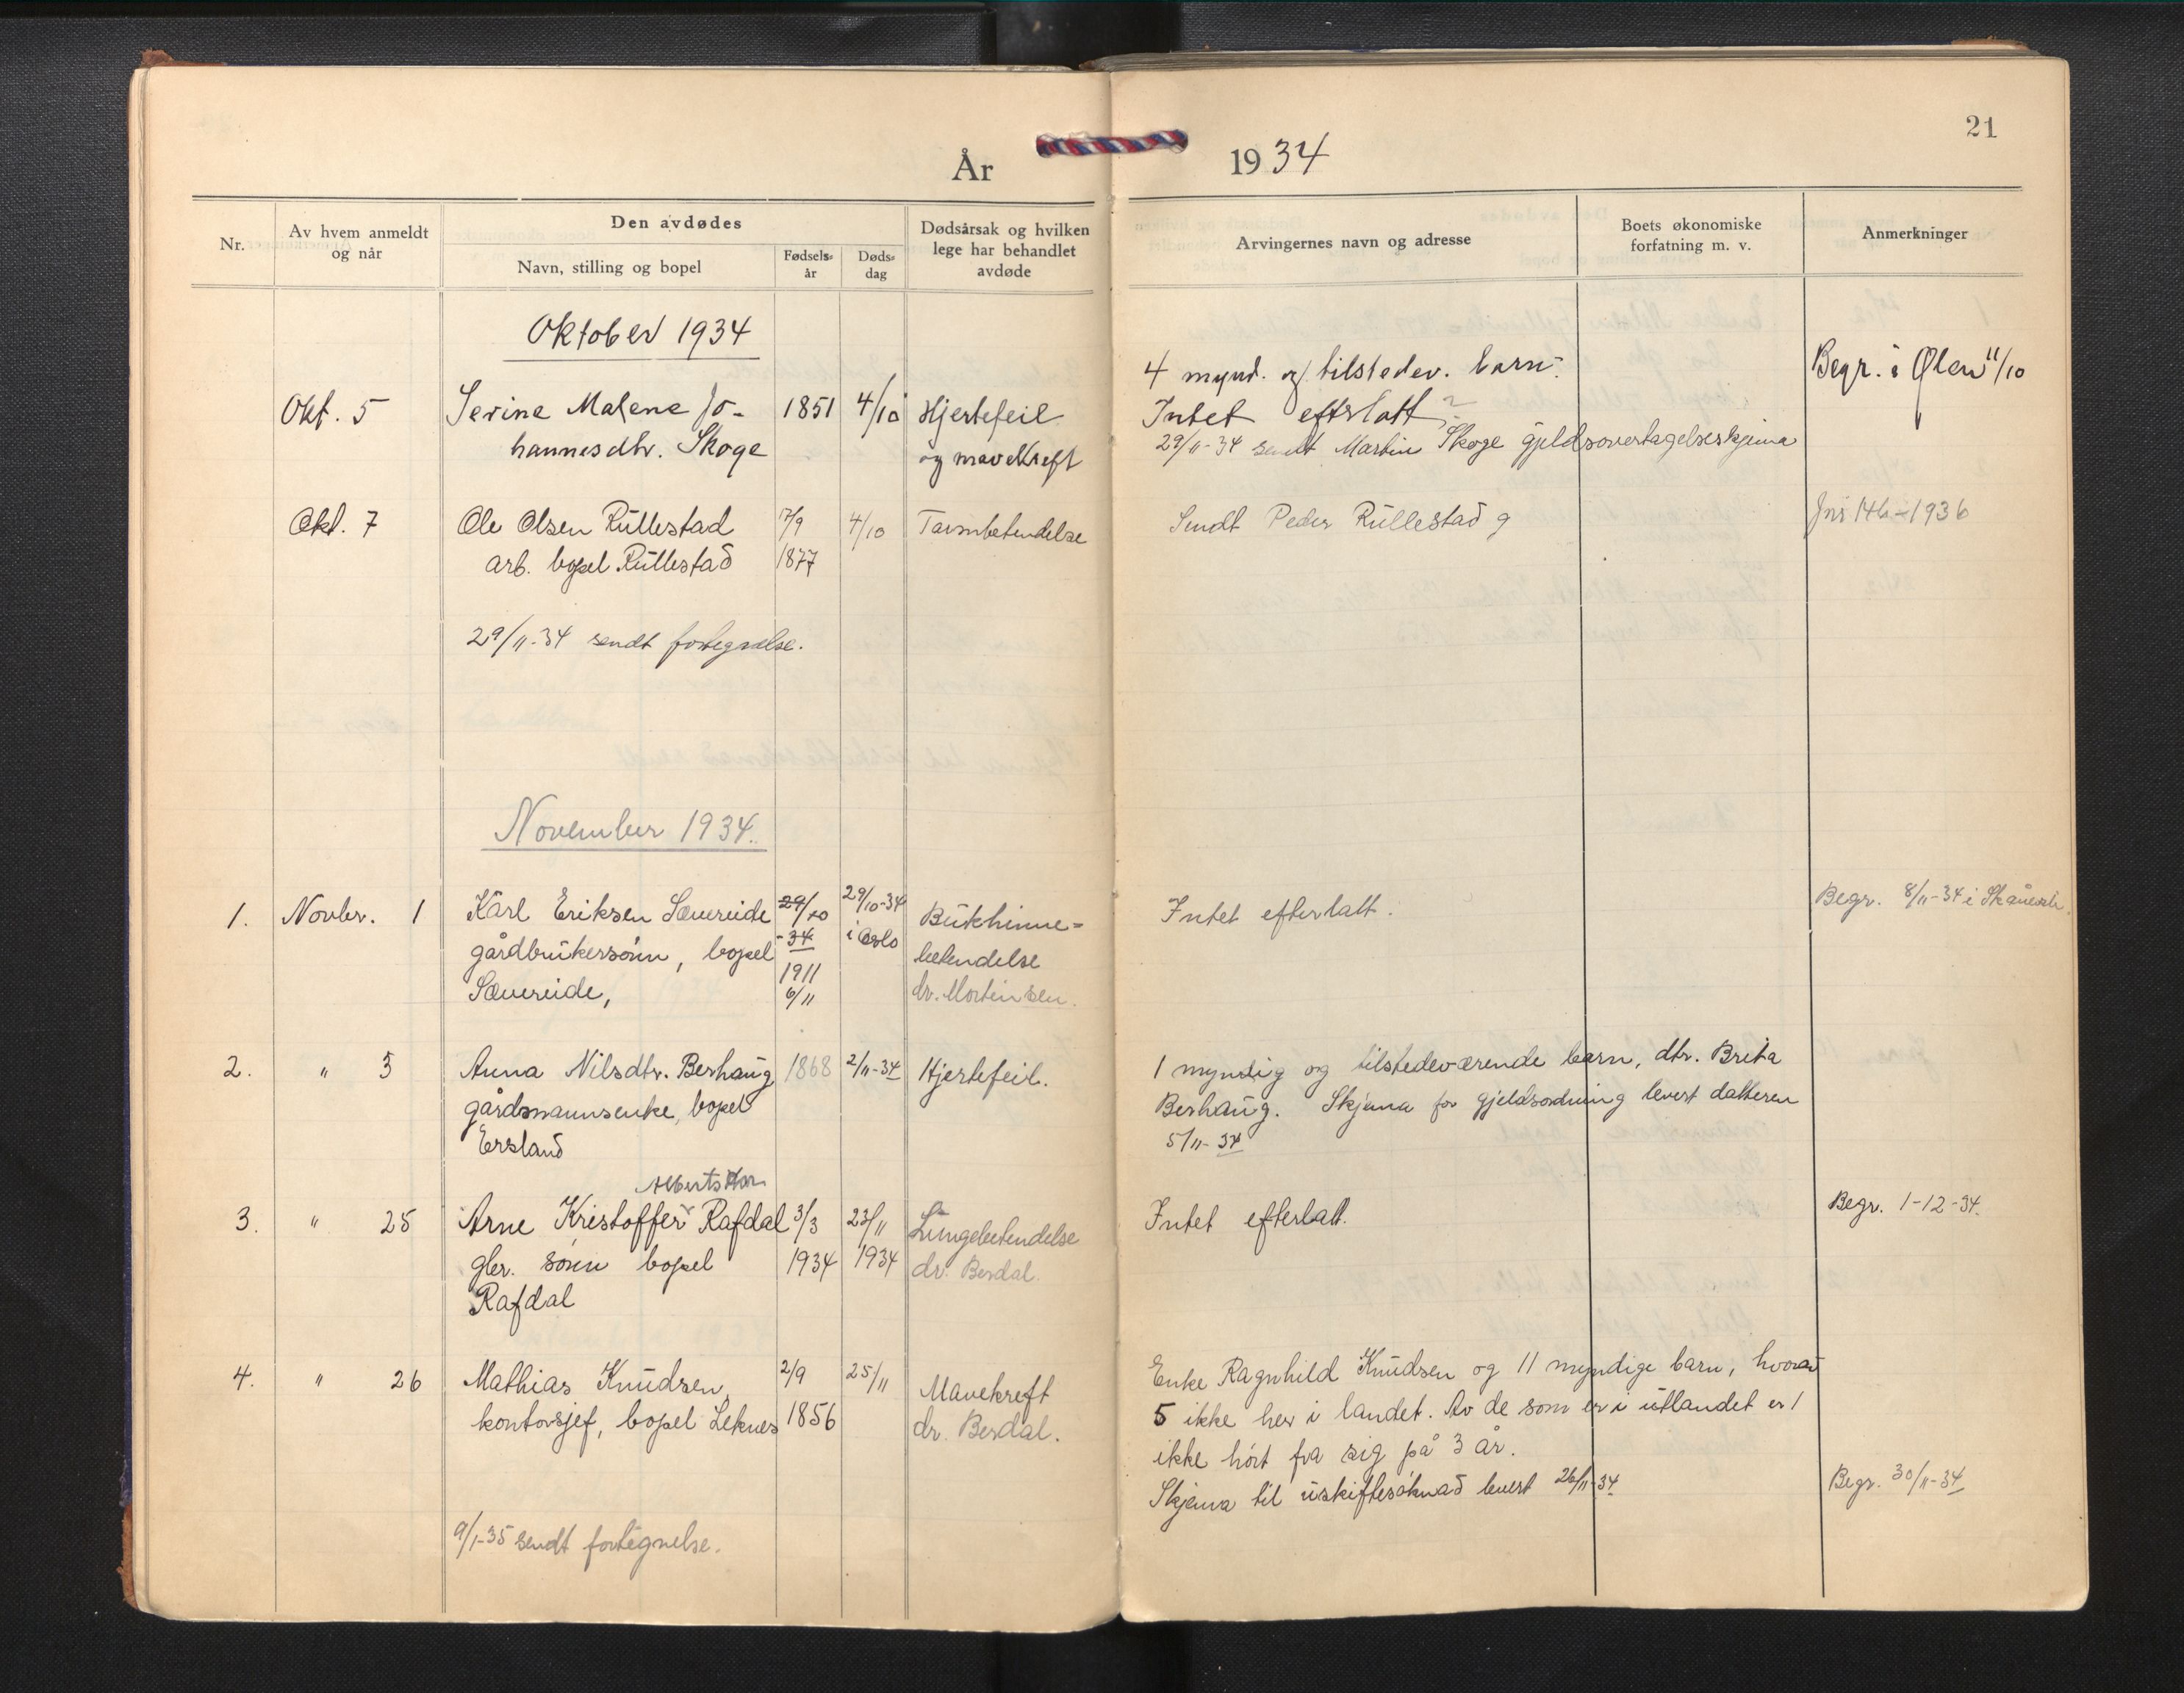 21
År 1934
Nr.
Av hvem anmeldt
og når
Den avdødes
Navn, stilling og bopel
Fødsels-
år
Døds-
dag
Dødsårsak og hvilken
lege har behandlet
avdøde
Arvingernes navn og adresse
Boets økonomiske
forfatning m. v.
Anmerkninger
Oktober 1934
4 mynd. og tilstedev. barn.
Begr. i Ølen 11/10
Okt. 5 Serine Malene Jo- 1851 4/10 Hjertefeil Intet efterlatt
hannesdtr. Skoge og mavekreft 29/11-34 sendt Martin Skoge gjeldsovertagelseskjema
Okt. 7 Ole Olsen Rullestad 17/9 4/10 Tarmbetendelse Sendt Peder Rullestad 9 1936
arb. bopel Rullestad 1877
29/11-34 sendt fortegnelse.
November 1934.
1. Novbr. 1 Karl Eriksen Sævereide 29/10 29/10-34 Bukhinne- Intet efterlatt. Begr. 8/11-34 i Skånevik.
gårdbrukersønn, bopel -34 i Oslo betendelse
Sævereide, 1911 dr. Mortensen.
6/11
2. " 5 Anna Nilsdtr. Berhaug 1868 2/11-34 Hjertefeil. 1 myndig og tilstedeværende barn, dtr. Brita
gårdmannsenke, bopel Berhaug. Skjema for gjeldsordning levert datteren
Ersland 5/11-34
3. " 25 Arne Kristoffer Rafdal 3/3 23/11 Lungebetendelse Intet efterlatt. Begr. 1-12-34.
gbr. sønn bopel 1934 1934 dr. Berdal.
Rafdal
4. " 26 Mathias Knudsen, 2/9 25/11 Mavekreft Enke Ragnhild Knudsen og 11 myndige barn, hvorav
kontorsjef, bopel Leknes 1856 dr. Berdal. 5 ikke her i landet. Av de som er i utlandet er 1
ikke hørt fra sig på 3 år.
Skjema til uskiftesøknad levert 26/11-34 Begr. 30/11-34
9/1-35 sendt fortegnelse.